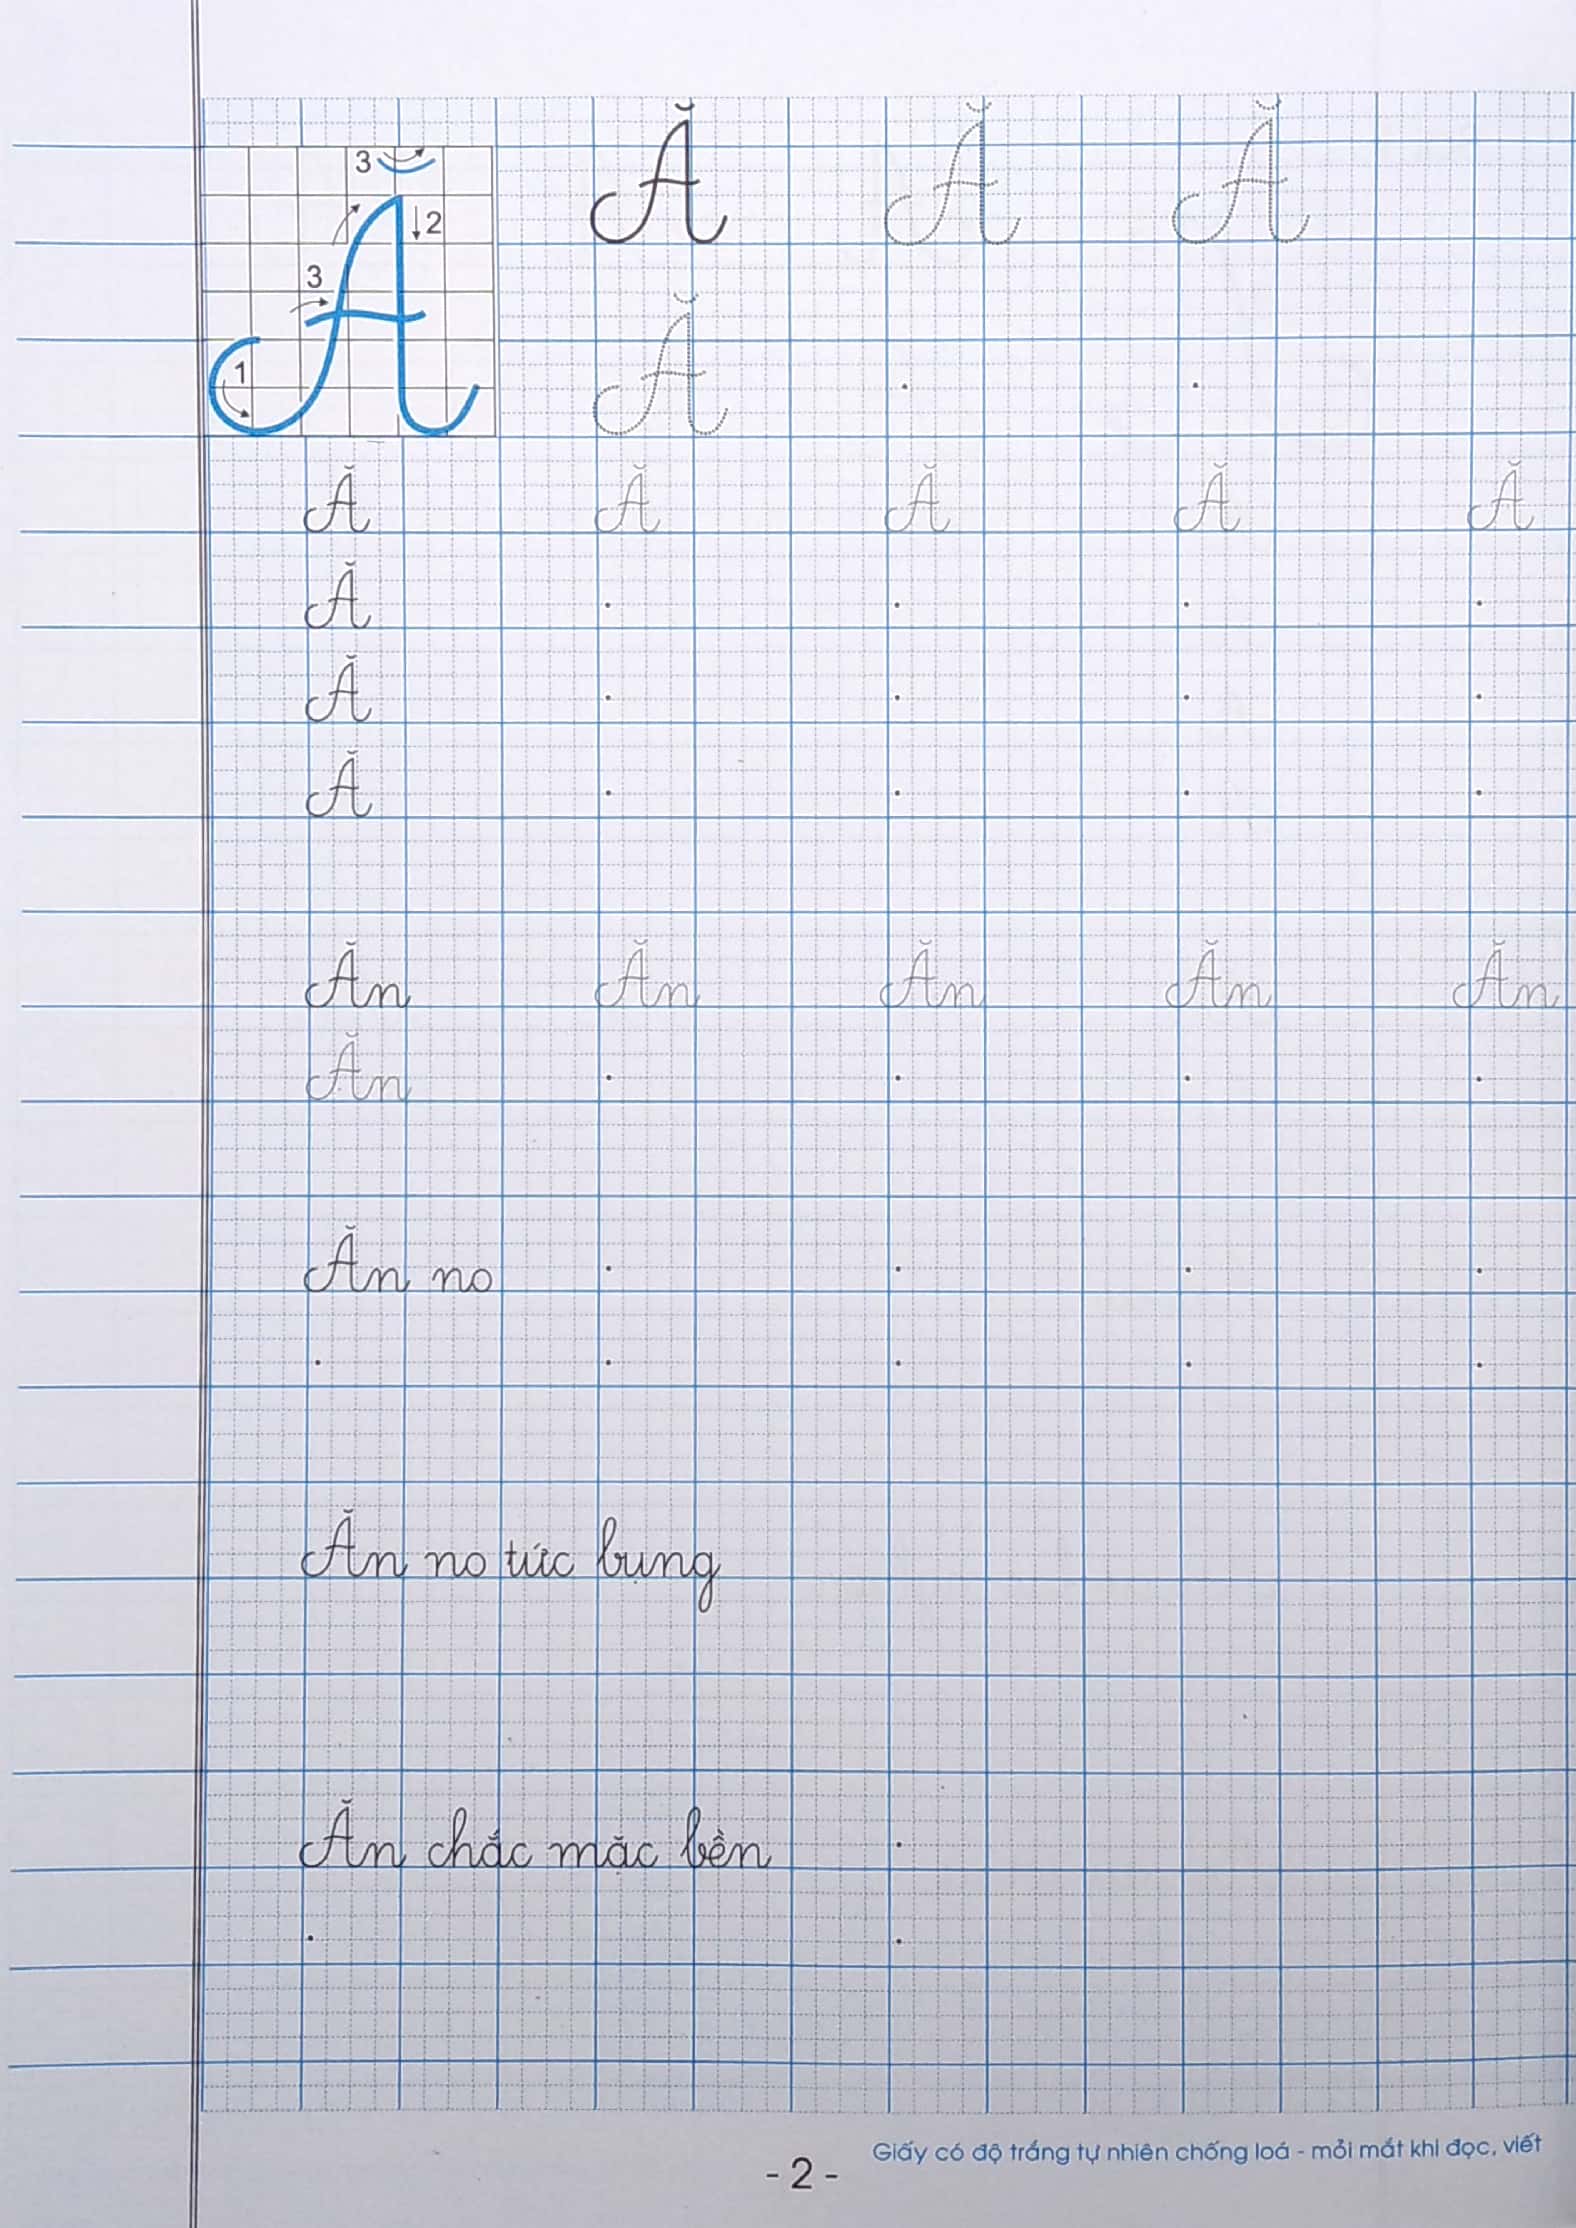 3
Ă Ă Ă
2
3
1
Ă
Ă Ă Ă Ă Ă
Ă
Ă
Ă
Ăn Ăn Ăn Ăn Ăn
Ăn
Ăn no
Ăn no tức bụng
Ăn chắc mặc bền
Giấy có độ trắng tự nhiên chống loá - mỏi mắt khi đọc, viết
- 2 -